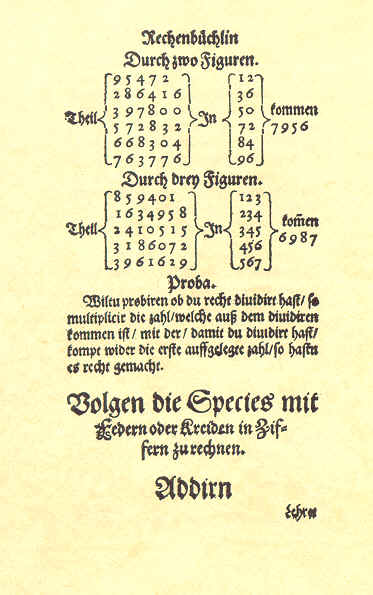 Rechenbüchlin
Durch zwo Figuren.
95472 12
286416 36
Theil 397800 In 50 kommen
572832 72 7956
668304 84
763776 96
Durch drey Figuren.
859401 123
1634958 234
Theil 2410515 In 345 kom̃en
3186072 456 6987
3961629 567
Proba.
Wiltu probiren ob du recht diuidirt hast/ so
multiplicir die zahl/welche auß dem diuidiren
kommen ist / mit der / damit du diuidirt hast/
kompt wider die erste auffgelegte zahl/so hastu
es recht gemacht.
Volgen die Species mit
Federn oder Kreiden in Zif-
fern zu rechnen.
Addirn